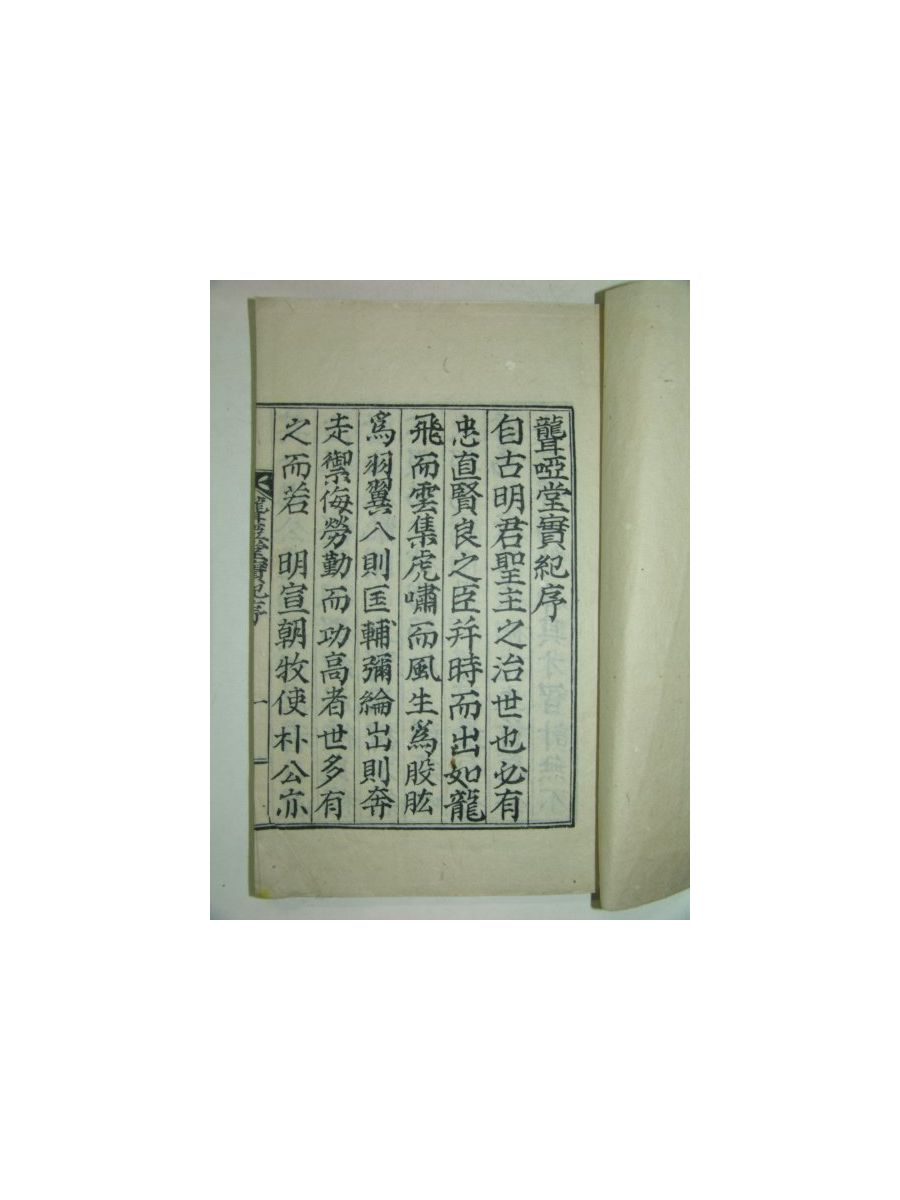 聾啞堂實紀序
自古明君聖主之治世也必有
忠直賢良之臣幷時而出如龍
飛而雲集虎嘯而風生爲股肱
爲羽翼入則匡輔彌綸出則奔
走禦侮勞勤而功高者世多有
之而若 明宣朝牧使朴公亦
聾啞堂實紀序 一